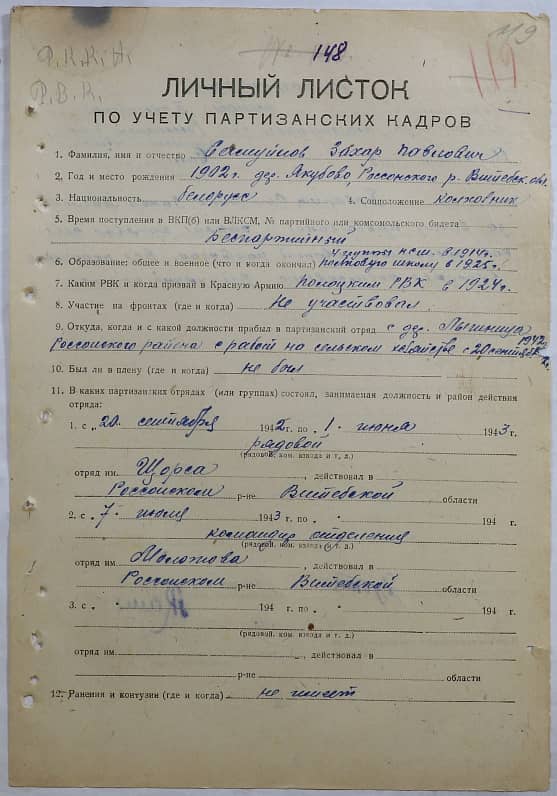 119
148
119
Р.К.К.А.
Р.В.К.
ЛИЧНЫЙ ЛИСТОК
ПО УЧЕТУ ПАРТИЗАНСКИХ КАДРОВ
1. Фамилия, имя и отчество Захар Павлович
2. Год и место рождения 1902 г. дер. Якубово, Россонского р. Витебск. обл.
3. Национальность белорусс 4. Соцположение колхозник
5. Время поступления в ВКП(б) или ВЛКСМ, № партийного или комсомольского билета
Беспартийный
4 группы НСШ. в 1914 г.
6. Образование: общее и военное (что и когда окончил) полковую школу в 1925 г.
7. Каким РВК и когда призван в Красную Армию полоцким РВК в 1924 г.
8. Участие на фронтах (где и когда) не участвовал
9. Откуда, когда и с какой должности прибыл в партизанский отряд с дер.
1942
Россонского района с работ на сельском хозяйстве с 20 сентября
10. Был ли в плену (где и когда) не был
11. В каких партизанских отрядах (или группах) состоял, занимаемая должность и район действия
отряда:
1. с „20. сентября 1942 г. по „1. июня 1943 г.
рядовой
(рядовой, ком. взвода и т. д.)
отряд им. Щорса, действовал в
Россонском р-не Витебской области
2. с „7. июля 1943 г. по „ " 194 г.
командир отделения
(рядовой, ком. взвода и т. д.)
отряд им. Молотова, действовал в
Россонском р-не Витебской области
3. с „ " 194 г. по „ " 194 г.
(рядовой, ком. взвода и т. д.)
отряд им. , действовал в
р-не области
12. Ранения и контузии (где и когда) не имеет